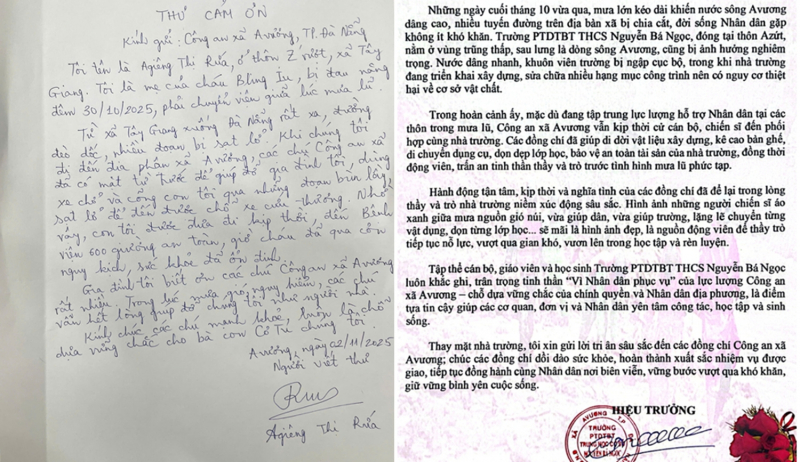 THƯ CẢM ƠN
Kính gửi: Công an xã Avương, TP. Đà Nẵng
Tôi tên là Agiêng Thị Rứá, ở thôn Z'rượt, xã Tây
Giang. Tôi là mẹ của cháu Bling Iu, bị đau nặng
đêm 30/10/2025, phải chuyển viện giữa lúc mưa lũ.
Từ xã Tây Giang xuống Đà Nẵng rất xa, đường
đèo dốc, nhiều đoạn bị sạt lở. Khi chúng tôi
đi đến địa phận xã Avương, các chú Công an xã
đã có mặt từ trước để giúp đỡ gia đình tôi, dùng
xe chở và cõng con tôi qua những đoạn bùn lầy,
sạt lở để đến được chỗ xe cứu thương. Nhờ
vậy, con tôi được đưa đi kịp thời, đến Bệnh
viện 600 giường an toàn, giờ cháu đã qua cơn
nguy kịch, sức khỏe đã ổn định.
Gia đình tôi biết ơn các chú Công an xã Avương
rất nhiều. Trong lúc mưa gió, nguy hiểm, các chú
vẫn hết lòng giúp đỡ chúng tôi như người nhà.
Kính chúc các chú mạnh khoẻ, luôn là chỗ
dựa vững chắc cho bà con Cơ Tu chúng tôi.
Avương, ngày 02/11/2025
Người viết thư
Agiêng Thị Rứá
Những ngày cuối tháng 10 vừa qua, mưa lớn kéo dài khiến nước sông Avương
dâng cao, nhiều tuyến đường trên địa bàn xã bị chia cắt, đời sống Nhân dân gặp
không ít khó khăn. Trường PTDTBT THCS Nguyễn Bá Ngọc, đóng tại thôn Azứt,
nằm ở vùng trũng thấp, sau lưng là dòng sông Avương, cũng bị ảnh hưởng nghiêm
trọng. Nước dâng nhanh, khuôn viên trường bị ngập cục bộ, trong khi nhà trường
đang triển khai xây dựng, sửa chữa nhiều hạng mục công trình nên có nguy cơ thiệt
hại về cơ sở vật chất.
Trong hoàn cảnh ấy, mặc dù đang tập trung lực lượng hỗ trợ Nhân dân tại các
thôn trong mưa lũ, Công an xã Avương vẫn kịp thời cử cán bộ, chiến sĩ đến phối
hợp cùng nhà trường. Các đồng chí đã giúp di dời vật liệu xây dựng, kê cao bàn ghế,
di chuyển dụng cụ, dọn dẹp lớp học, bảo vệ an toàn tài sản của nhà trường, đồng thời
động viên, trấn an tinh thần thầy và trò trước tình hình mưa lũ phức tạp.
Hành động tận tâm, kịp thời và nghĩa tình của các đồng chí đã để lại trong lòng
thầy và trò nhà trường niềm xúc động sâu sắc. Hình ảnh những người chiến sĩ áo
xanh giữa mưa nguồn gió núi, vừa giúp dân, vừa giúp trường, lặng lẽ chuyển từng
vật dụng, dọn từng lớp học... sẽ mãi là hình ảnh đẹp, là nguồn động viên để thầy trò
tiếp tục nỗ lực, vượt qua gian khó, vươn lên trong học tập và rèn luyện.
Tập thể cán bộ, giáo viên và học sinh Trường PTDTBT THCS Nguyễn Bá Ngọc
luôn khắc ghi, trân trọng tinh thần “Vì Nhân dân phục vụ” của lực lượng Công an
xã Avương – chỗ dựa vững chắc của chính quyền và Nhân dân địa phương, là điểm
tựa tin cậy giúp các cơ quan, đơn vị và Nhân dân yên tâm công tác, học tập và sinh
sống.
Thay mặt nhà trường, tôi xin gửi lời tri ân sâu sắc đến các đồng chí Công an xã
Avương; chúc các đồng chí dồi dào sức khỏe, hoàn thành xuất sắc nhiệm vụ được
giao, tiếp tục đồng hành cùng Nhân dân nơi biên viễn, vững bước vượt qua khó khăn,
giữ vững bình yên cuộc sống.
HIỆU TRƯỞNG
TRƯỜNG
PTDTBT
TRUNG HỌC CƠ SỞ
NGUYỄN BÁ NGỌC